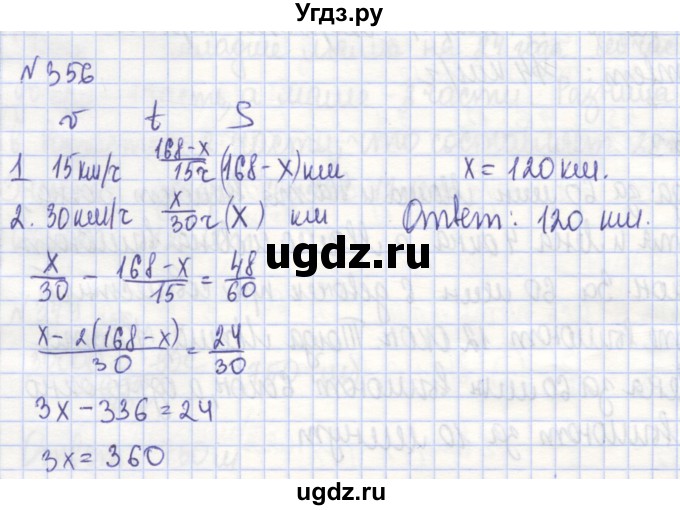 Угдз.ру
№ 356
v t S
1 15км/ч (168-x)/15 ч (168-x) км x = 120 км.
2. 30км/ч x/30 ч (x) км Ответ: 120 км.
x/30 - (168-x)/15 = 48/60
(x-2(168-x))/30 = 24/30
3x-336=24
3x=360
ugdz.ru
ugdz.ru